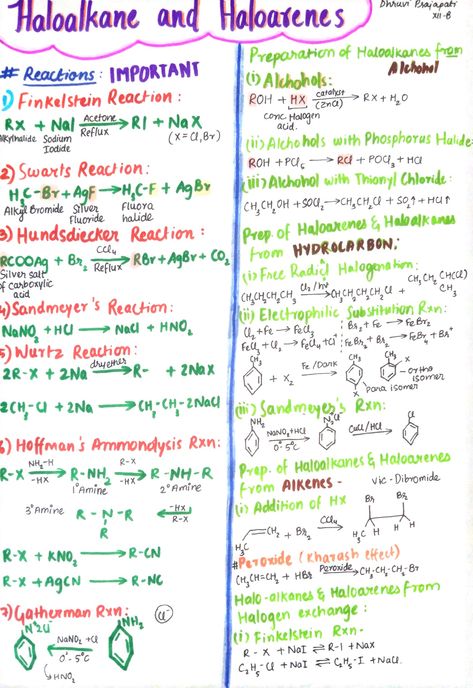 Haloalkane and Haloarenes
Dhruvi Prajapati
XII-B
# Reactions: IMPORTANT
1) Finkelstein Reaction:
RX + NaI Acetone → Reflux RI + NaX
Alkylhalide Sodium Iodide (X = Cl, Br)
2) Swarts Reaction:
H₃C-Br + AgF → H₃C-F + AgBr
Alkyl Bromide Silver Fluoride Fluora halide
3) Hundsdiecker Reaction:
RCOOAg + Br₂ CCl₄ → Reflux RBr + AgBr + CO₂
Silver salt
of carboxylic
acid
4) Sandmeyer's Reaction:
NaNO₂ + HCl → NaCl + HNO₂
5) Wurtz Reaction:
2R-X + 2Na dryether → R- + 2NaX
2CH₃-Cl + 2Na → CH₃-CH₃-2NaCl
6) Hoffman's Ammondysis Rxn:
R-X NH₂-H → -HX R-NH₂ R-X → -HX R-NH-R
1° Amine 2° Amine
3° Amine R-N-R ← -HX R-X
R
R-X + KNO₂ → R-CN
R-X + AgCN → R-NC
7) Gatherman Rxn:
Cl
N≡2Cl NaNO₂ + Cl 0°-5°C NH₂
↳ HNO₂
Preparation of Haloalkanes from
Alcohol
(i) Alchohols:
ROH + HX catalyst → (ZnCl) RX + H₂O
conc Halogen
acid.
(ii) Alchohols with Phosphorus Halide:
ROH + PCl₅ → RCl + POCl₃ + HCl
(iii) Alchohol with Thionyl Chloride:
CH₃CH₂OH + SOCl₂ → CH₃CH₂Cl + SO₂↑ + HCl↑
Prep. of Haloarenes & Haloalkanes
from HYDROCARBON:
(i) Free Radicl Halogenation:
CH₃CH₂CH₂CH₃ Cl₂/hv → CH₃CH₂CH₂CH₂Cl + CH₃CH₂CH(Cl)CH₃
(ii) Electrophilic Substitution Rxn:
Cl₂ + Fe → FeCl₃ Br₂ + Fe → FeBr₃
FeCl₃ + Cl₂ → FeCl₄ + Cl⁺ FeBr₃ + Br₂ → FeBr₄ + Br⁺
CH₃ + X₂ Fe/Dark → CH₃ X + CH₃ X
ortho isomer
para isomer
(iii) Sandmeyer's Rxn:
NH₂ NaNO₂+HCl → 0°-5°C N₂Cl CuCl/HCl → Cl
Prep. of Haloalkanes & Haloarenes
from ALKENES - Vic-Dibromide
(i) Addition of HX
H₃C CH₂ + Br₂ CCl₄ → H₃C Br Br H
# Peroxide (Kharash effect)
CH₃CH=CH₂ + HBr Peroxide → CH₃-CH₂-CH₂-Br
Halo-alkanes & Haloarenes from
Halogen exchange:
(i) Finkelstein Rxn-
R-X + NaI ⇌ R-I + NaX
C₂H₅-Cl + NaI ⇌ C₂H₅-I + NaCl.